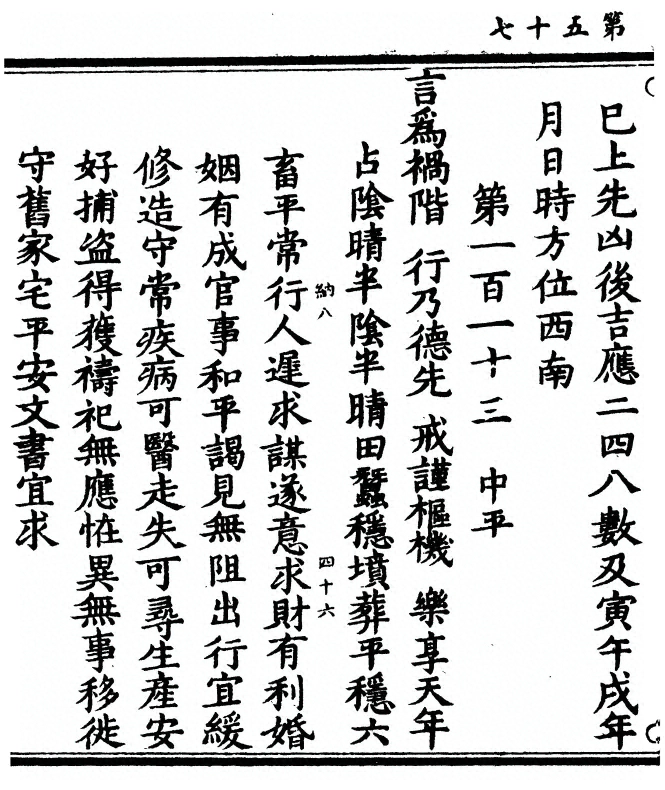 第五十七
巳上先凶後吉應二四八數及寅午戌年
月日時方位西南
第一百一十三　中平
言爲禍階　行乃德先　戒謹樞機　樂享天年
占陰晴半陰半晴田蠶穩墳葬平穩六
納八　四十六
畜平常行人遲求謀遂意求財有利婚
姻有成官事和平謁見無阻出行宜緩
修造守常疾病可醫走失可尋生產安
好捕盜得獲禱祀無應恠異無事移徙
守舊家宅平安文書宜求